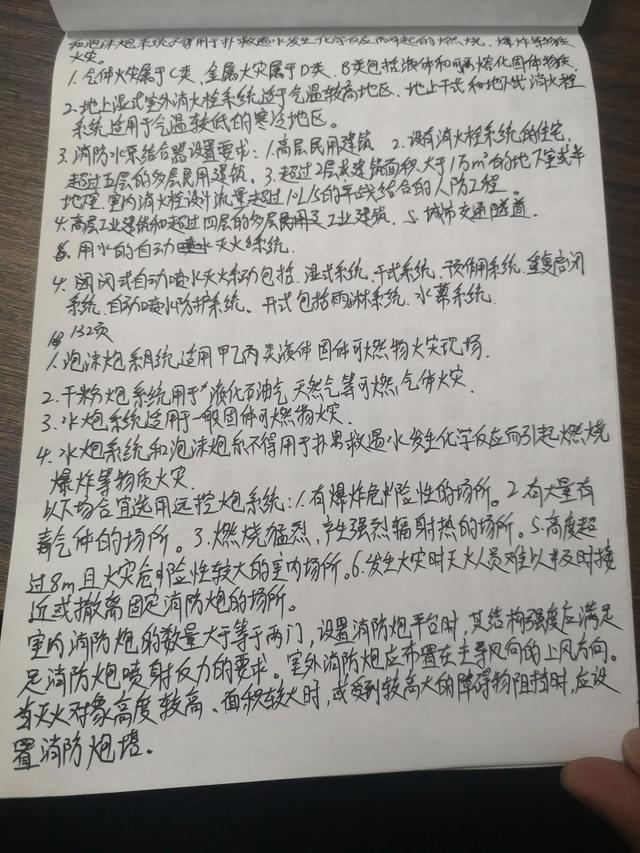 和泡沫炮系统不得用于扑救遇水发生化学反应而引起的燃烧、爆炸等物质
火灾。
1.气体火灾属于C类、金属火灾属于D类、B类包括液体和可熔化固体物质
2.地上湿式室外消火栓系统适于气温较高地区、地上干式和地下式消火栓
系统适用于气温较低的寒冷地区。
3.消防水泵结合器设置要求:1.高层民用建筑 2.设有消火栓系统的住宅,
超过五层的多层民用建筑、3.超过2层或建筑面积大于1万m²的地下室或半
地下室、室内消火栓设计流量超过10L/S的平战结合的人防工程。
4.高层工业建筑和超过四层的多层工业建筑、5.城市交通隧道
6.用水的自动灭火系统.
4.闭式自动喷水灭火系统包括、湿式系统、干式系统、预作用系统、重复启闭
系统、自动喷水防护系统。开式包括雨淋系统、水幕系统.
132页
1.泡沫炮系统适用甲乙丙类液体固体可燃物火灾现场.
2.干粉炮系统用于液化石油气 天然气等可燃气体火灾.
3.水炮系统适用于一般固体可燃物火灾.
4.水炮系统和泡沫炮系不得用于扑救遇水发生化学反应而引起燃烧
爆炸等物质火灾.
以下场合宜选用远控炮系统:1.有爆炸危险性的场所。2.有大量有
毒气体的场所。3.燃烧猛烈,产生强烈辐射热的场所。5.高度超
过8m且火灾危险性较大的室内场所。6.发生火灾时灭火人员难以及时接
近或撤离固定消防炮的场所。
室内消防炮的数量大于等于两门,设置消防炮平台时,其结构强度应满足
足消防炮喷射反力的要求。室外消防炮应布置在主导风向的上风方向。
当灭火对象高度较高、面积较大时,或受到较高大的障碍物阻挡时,应设
置消防炮塔。